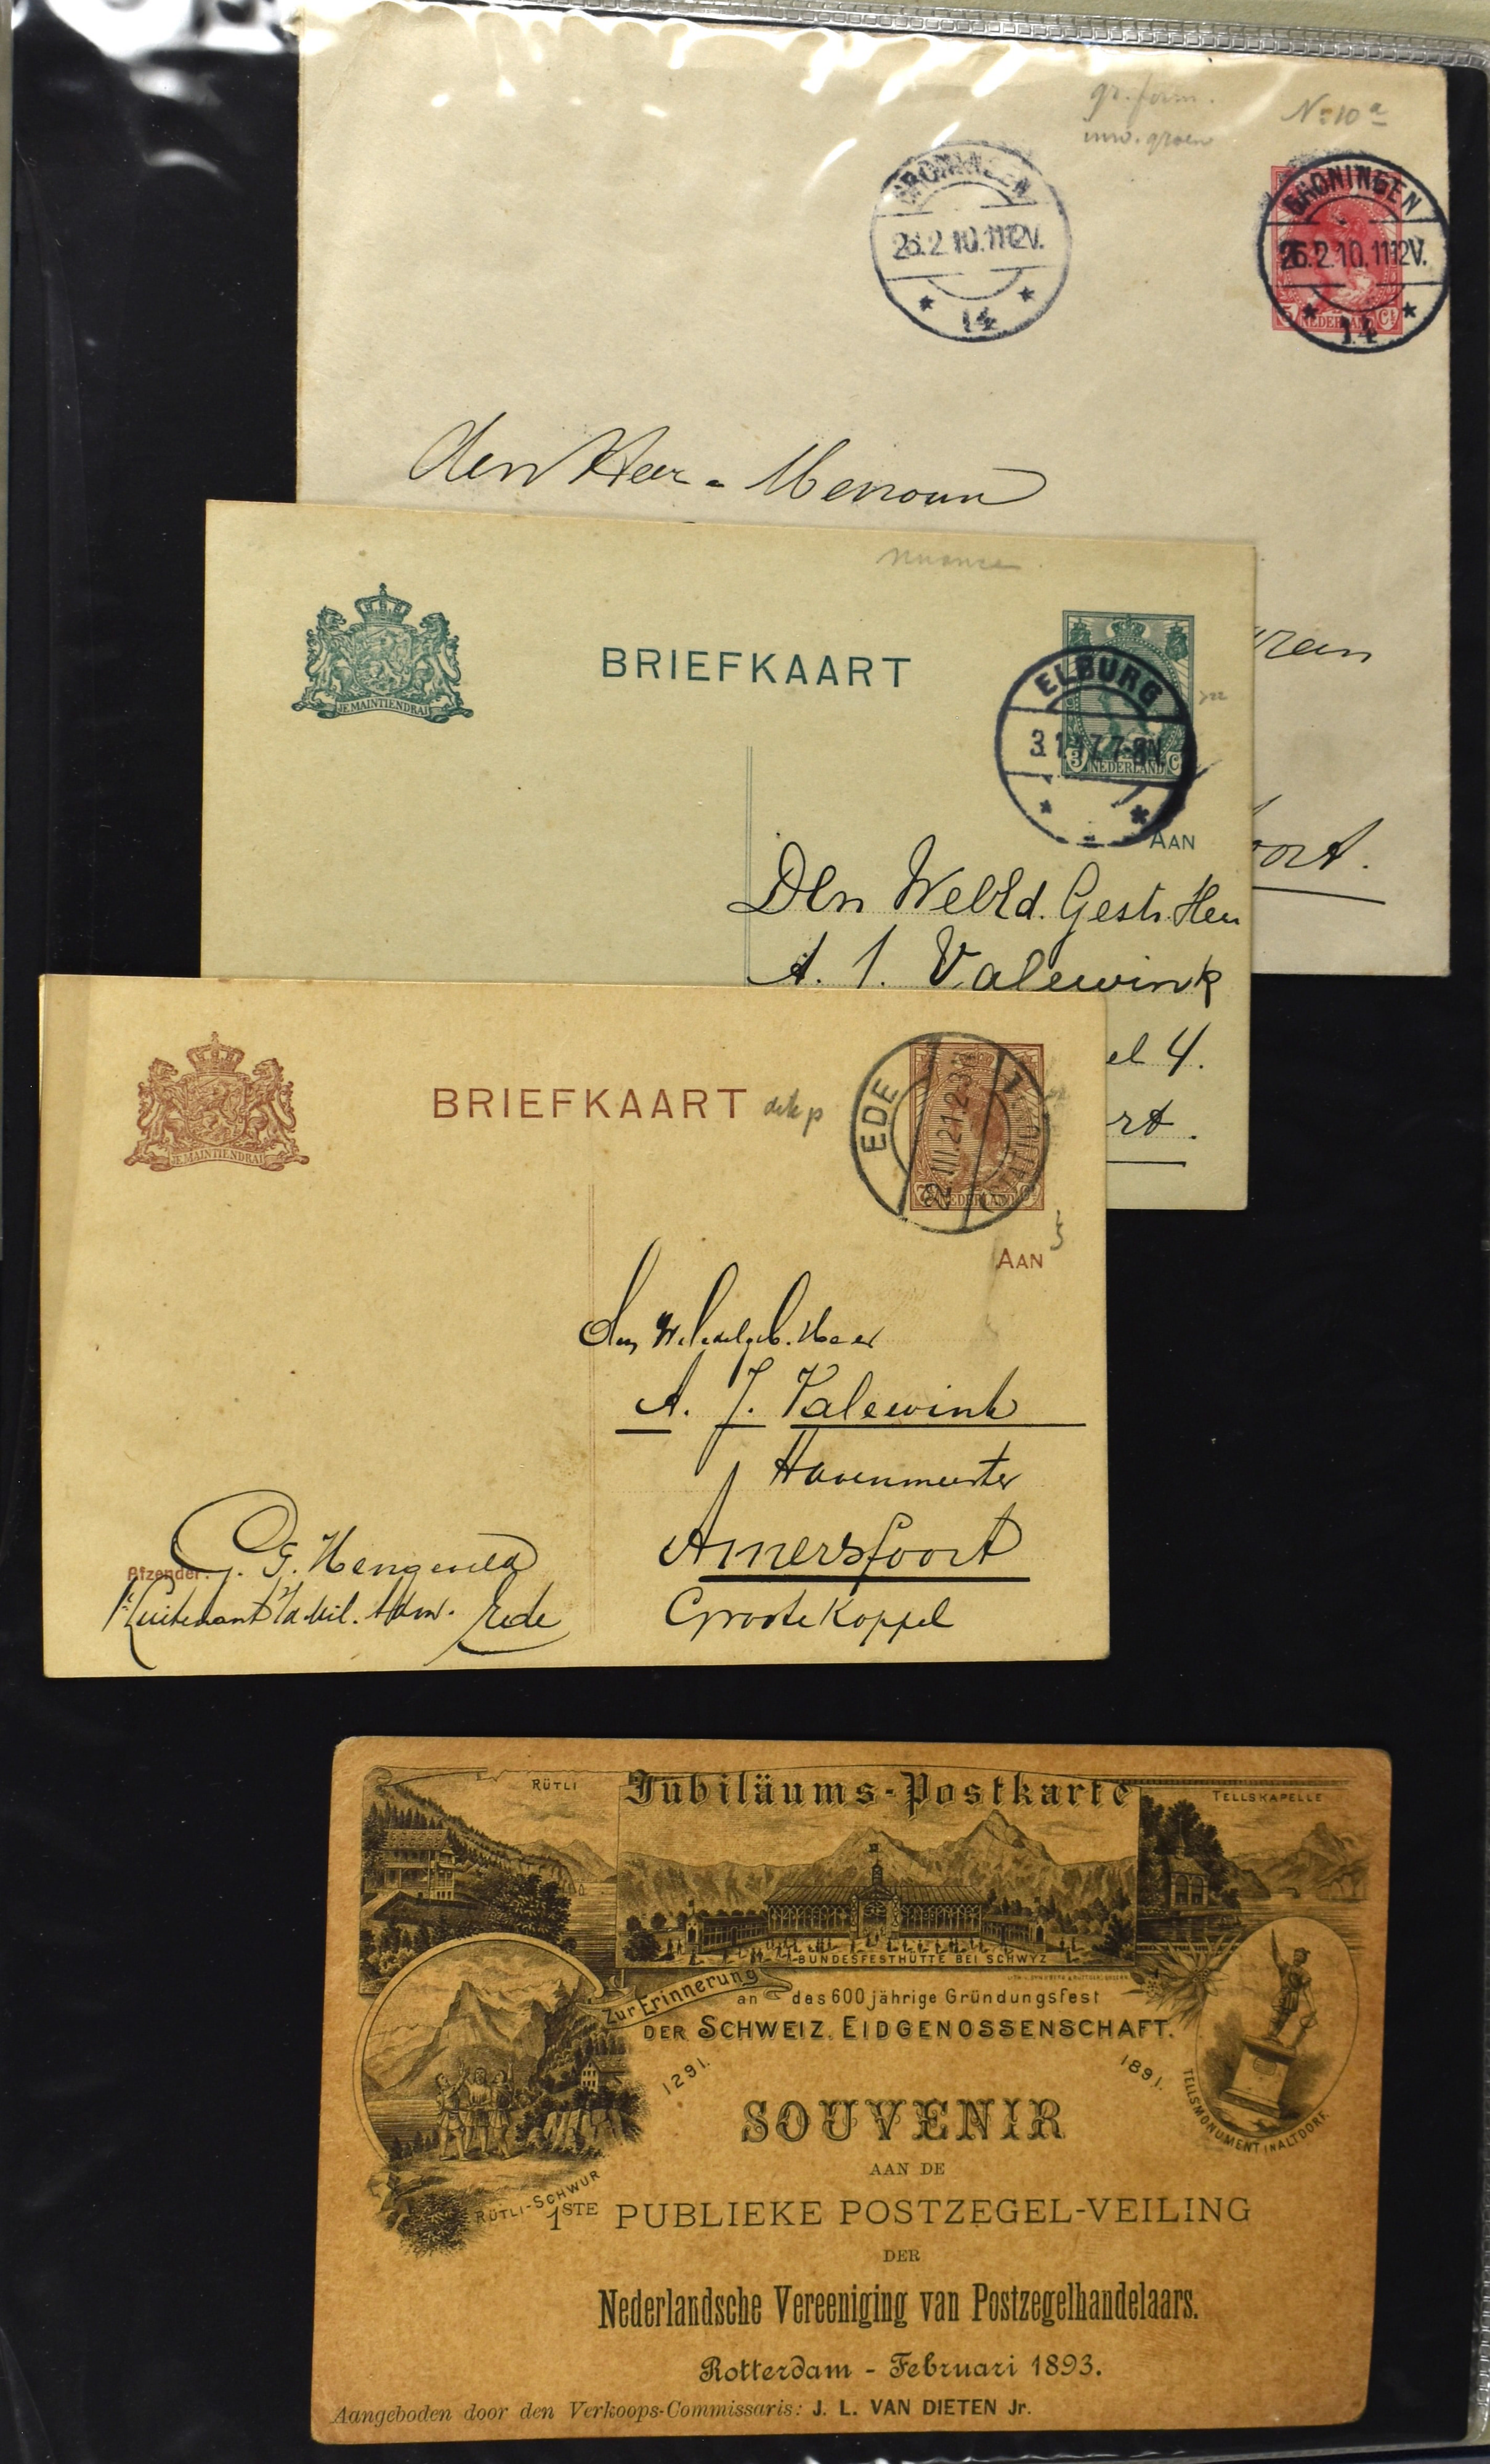 gr. form.
Nº 10 a
GRONINGEN
26.2.10.1112V.
14
GRONINGEN
26.2.10.1112V.
14
5 NEDERLAND Ct
den Heer
oort.
nuance
JE MAINTIENDRAI
BRIEFKAART
ELBURG
3 NEDERLAND C
AAN
Den WelEd. Gestr. Heer
A. J. Valewink
el 4.
rt.
JE MAINTIENDRAI
BRIEFKAART
EDE
2.III.21.2-3N
1
NEDERLAND
AAN
A. J. Valewink
Havenmeester
Amersfoort
Groote Koppel
Afzender:
G. Hengeveld
1e Luitenant Ede
RÜTLI
Jubiläums-Postkarte
TELLSKAPELLE
BUNDESFESTHÜTTE BEI SCHWYZ
Zur Erinnerung
an das 600 jährige Gründungsfest
DER SCHWEIZ. EIDGENOSSENSCHAFT.
1291.
1891.
TELLSMONUMENT IN ALTDORF
RÜTLI-SCHWUR
SOUVENIR
AAN DE
1STE PUBLIEKE POSTZEGEL-VEILING
DER
Nederlandsche Vereeniging van Postzegelhandelaars.
Rotterdam - Februari 1893.
Aangeboden door den Verkoops-Commissaris: J. L. VAN DIETEN Jr.